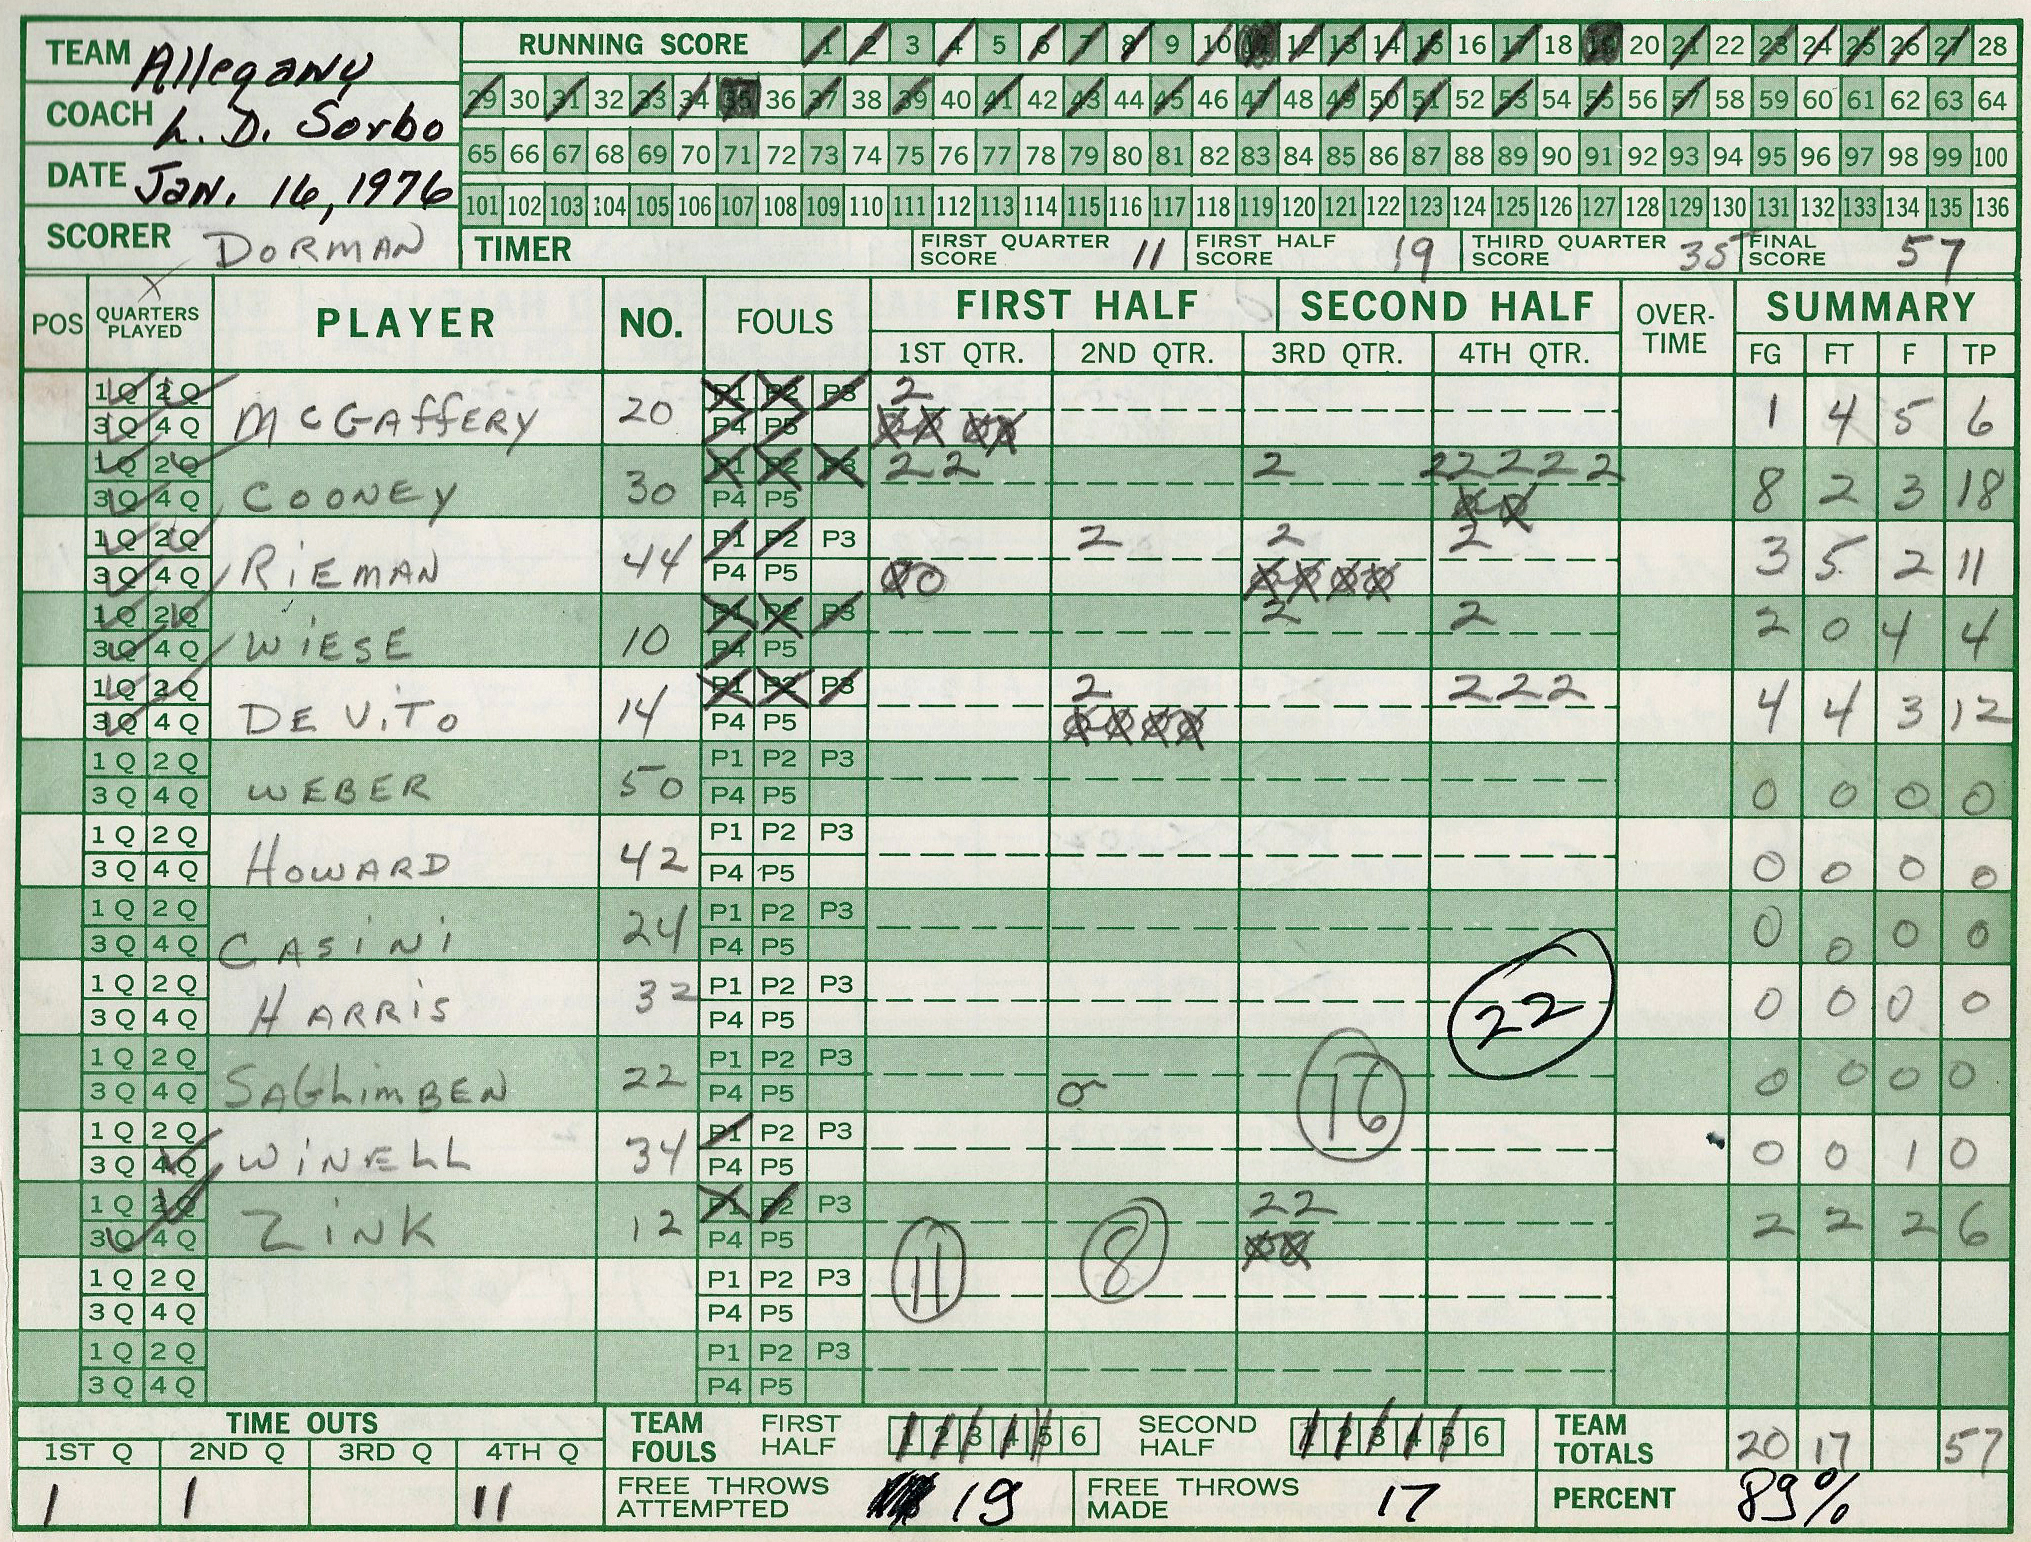 TEAM Allegany
RUNNING SCORE 1 2 3 4 5 6 7 8 9 10 11 12 13 14 15 16 17 18 19 20 21 22 23 24 25 26 27 28
COACH L. D. Sorbo
29 30 31 32 33 34 35 36 37 38 39 40 41 42 43 44 45 46 47 48 49 50 51 52 53 54 55 56 57 58 59 60 61 62 63 64
DATE Jan. 16, 1976
65 66 67 68 69 70 71 72 73 74 75 76 77 78 79 80 81 82 83 84 85 86 87 88 89 90 91 92 93 94 95 96 97 98 99 100
101 102 103 104 105 106 107 108 109 110 111 112 113 114 115 116 117 118 119 120 121 122 123 124 125 126 127 128 129 130 131 132 133 134 135 136
SCORER DORMAN
TIMER
FIRST QUARTER SCORE 11
FIRST HALF SCORE 19
THIRD QUARTER SCORE 35
FINAL SCORE 57
POS QUARTERS PLAYED PLAYER NO. FOULS FIRST HALF SECOND HALF OVER-TIME SUMMARY
1ST QTR. 2ND QTR. 3RD QTR. 4TH QTR. FG FT F TP
1Q 2Q P1 P2 P3 2
3Q 4Q McGAffERY 20 P4 P5 0 0 0 0 1 4 5 6
1Q 2Q P1 P2 P3 2 2 2 2 2 2 2 2
3Q 4Q COONEY 30 P4 P5 0 0 8 2 3 18
1Q 2Q P1 P2 P3 2 2 2
3Q 4Q RiEMAN 44 P4 P5 0 0 0 0 0 0 3 5 2 11
1Q 2Q P1 P2 P3 2 2
3Q 4Q WiESE 10 P4 P5 2 0 4 4
1Q 2Q P1 P2 P3 2 2 2 2
3Q 4Q DE ViTo 14 P4 P5 0 0 0 0 4 4 3 12
1Q 2Q P1 P2 P3
3Q 4Q WEBER 50 P4 P5 0 0 0 0
1Q 2Q P1 P2 P3
3Q 4Q HOWARD 42 P4 P5 0 0 0 0
1Q 2Q P1 P2 P3
3Q 4Q CASiNi 24 P4 P5 0 0 0 0
1Q 2Q P1 P2 P3
3Q 4Q HARRiS 32 P4 P5 22 0 0 0 0
1Q 2Q P1 P2 P3
3Q 4Q SAGhimBEN 22 P4 P5 0 16 0 0 0 0
1Q 2Q P1 P2 P3
3Q 4Q WiNELL 34 P4 P5 0 0 1 0
1Q 2Q P1 P2 P3 2 2
3Q 4Q ZiNK 12 P4 P5 0 0 2 2 2 6
1Q 2Q P1 P2 P3 11 8
3Q 4Q P4 P5
1Q 2Q P1 P2 P3
3Q 4Q P4 P5
TIME OUTS
1ST Q 2ND Q 3RD Q 4TH Q
1 1 11
TEAM FOULS FIRST HALF 1 2 3 4 5 6 SECOND HALF 1 2 3 4 5 6
TEAM TOTALS 20 17 57
FREE THROWS ATTEMPTED 19
FREE THROWS MADE 17
PERCENT 89%